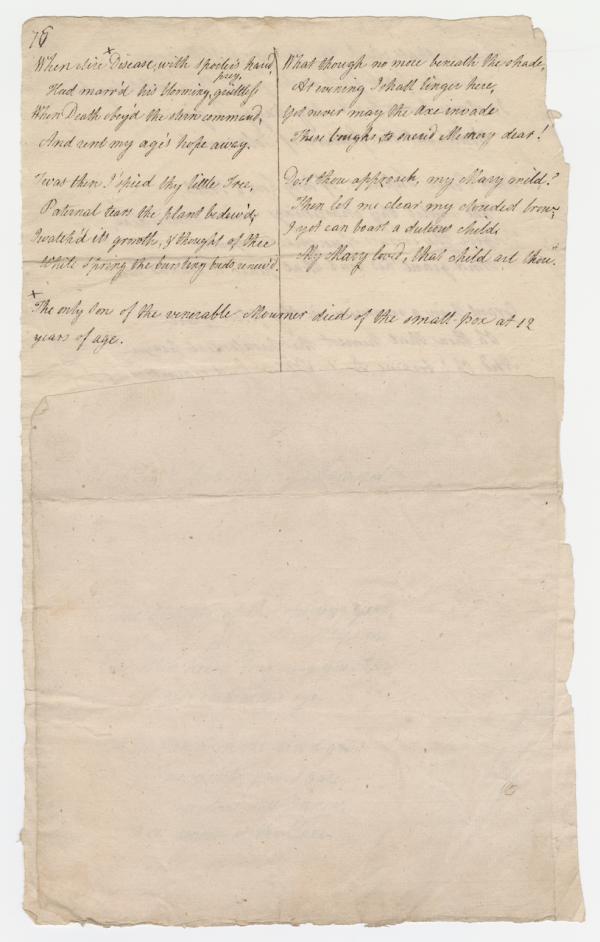 75
When dire x Disease, with spoiler's hand,
Had marr'd his blooming, guiltless prey,
When Death obey'd the stern command,
And rent my age's hope away.
'Twas then I spied thy little Tree,
Paternal tears the plant bedew'd;
I watch'd its growth, & thought of thee
While Spring the bursting buds renew'd.
What though no more beneath the shade,
At evening I shall linger here,
Yet never may the Axe invade
These boughs, to sacred Memory dear!
Dost thou approach, my Mary mild?
Then let me clear my clouded brow;
I yet can boast a duteous child,
My Mary lov'd, that child art thou".
x The only Son of the venerable Mourner died of the small-pox at 12
years of age.